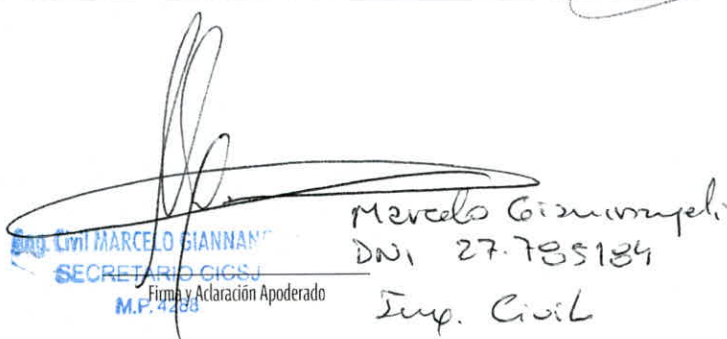 Ing. Civil MARCELO GIANNAN
SECRETARIO CICSJ
M.P. 4288
Firma y Aclaración Apoderado
Marcelo
DNI 27.785184
Ing. Civil